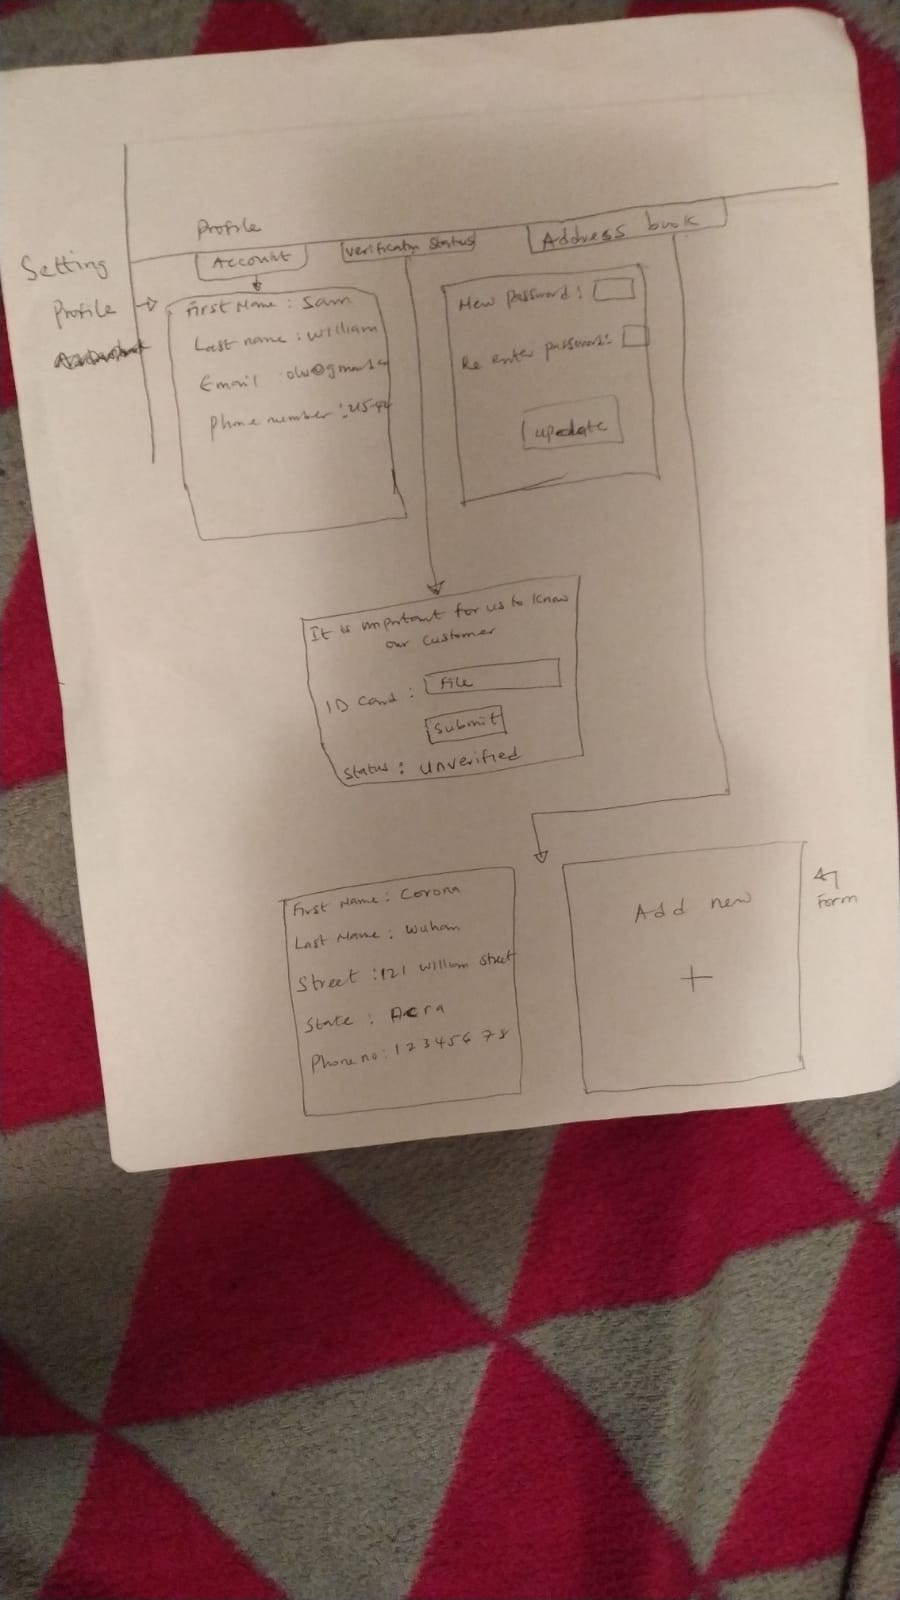 Profile
Setting
Account
verificatn status
Address book
Profile
First Name : Sam
Last name : William
Email :
Phone number :
New password :
Re enter password:
update
It is important for us to know
our customer
ID Card : File
Submit
Status : unverified
First Name : Corona
Last Name : Wuham
Street : 121 William street
State : Accra
Phone no : 12345678
Add new
+
Form